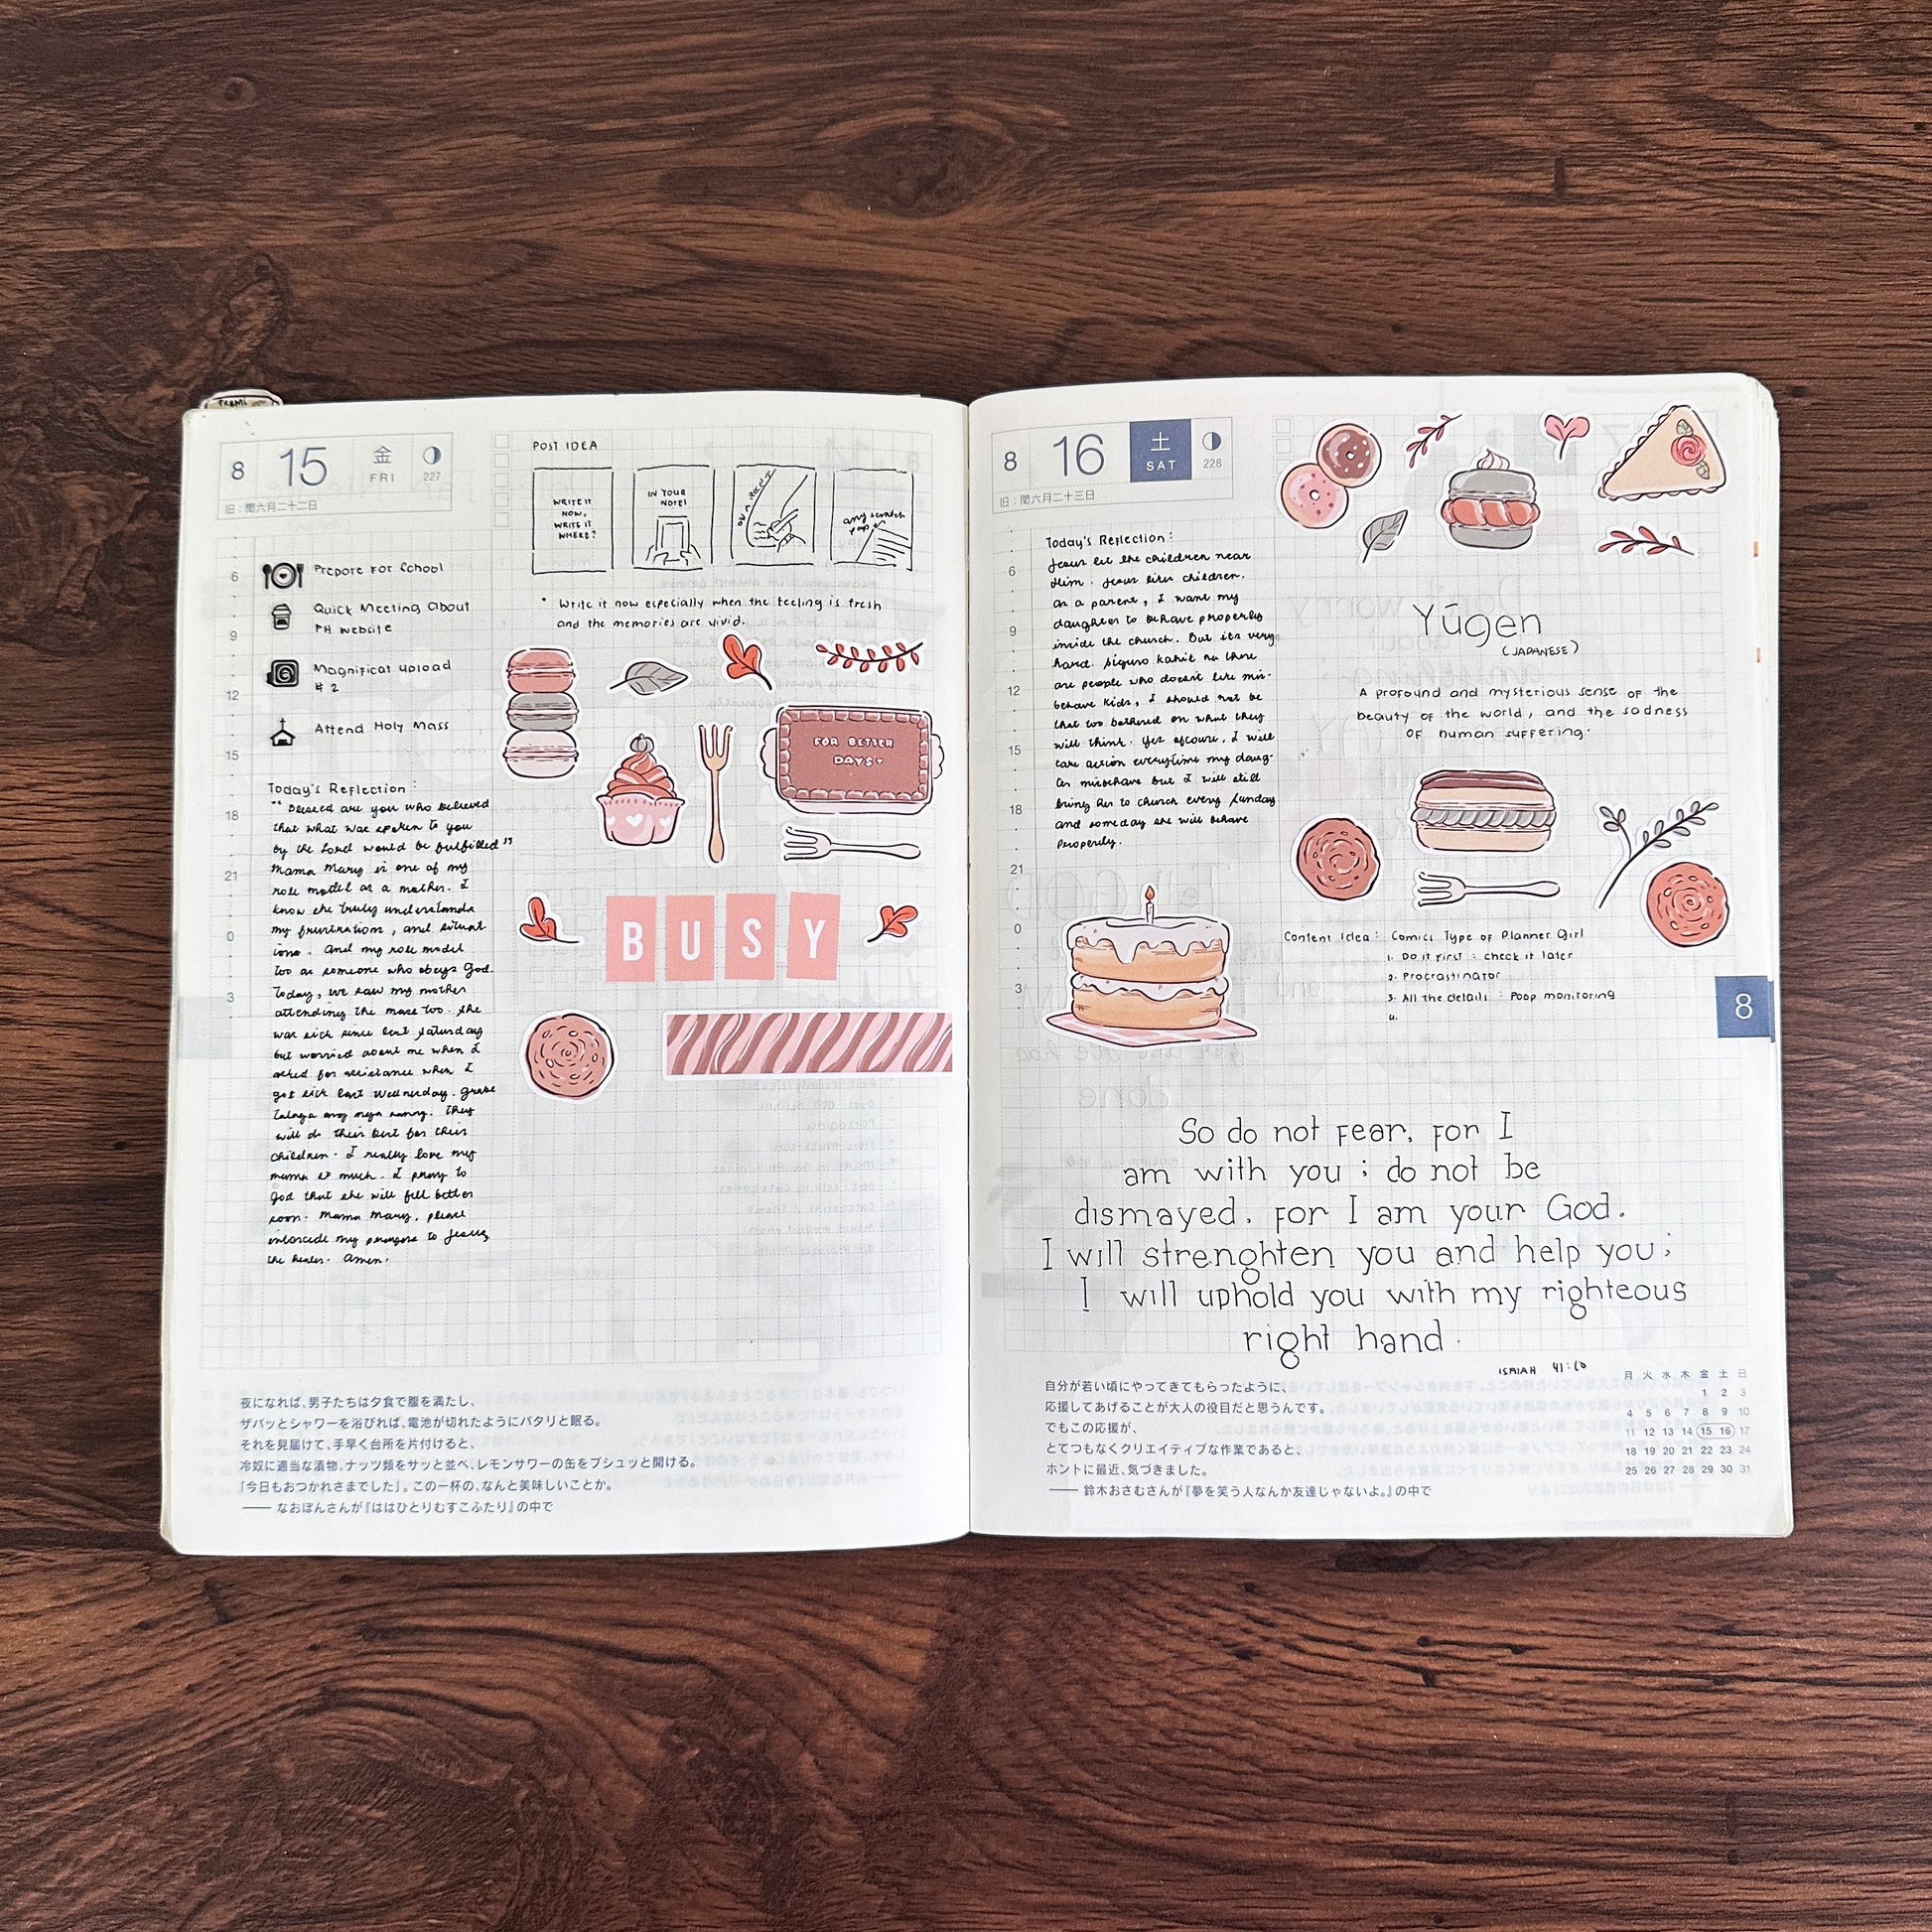 8 15 金 FRI 227
旧:閏六月二十二日
Prepare For School
Quick Meeting about
PH website
Magnificat upload
# 2
Attend Holy Mass
6
9
12
15
18
21
0
3
Today's Reflection :
"Blessed are you who believed
that what was spoken to you
by the Lord would be fulfilled"
Mama Mary is one of my
role model as a mother. I
know she truly understands
my frustration, and situat
ions. And my role model
too as someone who obeys God.
Today, we saw my mother
attending the mass too. She
was sick since last Saturday
but worried about me when I
asked for assistance when I
got sick last Wednesday. Grabe
talaga ang mga nanay. They
will do their best for their
children. I really love my
mama so much. I pray to
God that she will fell better
soon. Mama Mary, please
my to Jesus
the healer. Amen.
POST IDEA
WRITE IT
NOW,
WRITE IT
WHERE?
IN YOUR
NOTE!
any scratch
paper
* Write it now especially when the feeling is fresh
and the memories are vivid.
FOR BETTER
DAYS♥
BUSY
夜になれば、男子たちは夕食で腹を満たし、
ザバッとシャワーを浴びれば、電池が切れたようにバタリと眠る。
それを見届けて、手早く台所を片付けると、
冷奴に適当な漬物、ナッツ類をサッと並べ、レモンサワーの缶をプシュッと開ける。
「今日もおつかれさまでした」。この一杯の、なんと美味しいことか。
—— なおぽんさんが『ははひとりむすこふたり』の中で
8 16 土 SAT 228
旧:閏六月二十三日
6
9
12
15
18
21
0
3
Today's Reflection :
Jesus let the children near
Him. Jesus likes children.
As a parent, I want my
daughter to behave properly
inside the church. But its very
hard. Siguro kahit na there
are people who doesnt like mis-
behave kids, I should not be
that too bothered on what they
will think. Yes ofcourse, I will
take action everytime my daug-
ter misbehave but I will still
bring her to church every Sunday
and someday she will behave
properly.
Yūgen
(JAPANESE)
A profound and mysterious sense of the
beauty of the world, and the sadness
of human suffering.
Content Idea : Comics Type of Planner Girl
1. Do it First : check it later
2. Procrastinator
3. All the details : Poop monitoring
4.
8
So do not fear, for I
am with you ; do not be
dismayed, for I am your God.
I will strenghten you and help you;
I will uphold you with my righteous
right hand.
ISAIAH 41:10
自分が若い頃にやってきてもらったように、
応援してあげることが大人の役目だと思うんです。
でもこの応援が、
とてつもなくクリエイティブな作業であると、
ホントに最近、気づきました。
—— 鈴木おさむさんが『夢を笑う人なんか友達じゃないよ。』の中で
月 火 水 木 金 土 日
1 2 3
4 5 6 7 8 9 10
11 12 13 14 15 16 17
18 19 20 21 22 23 24
25 26 27 28 29 30 31